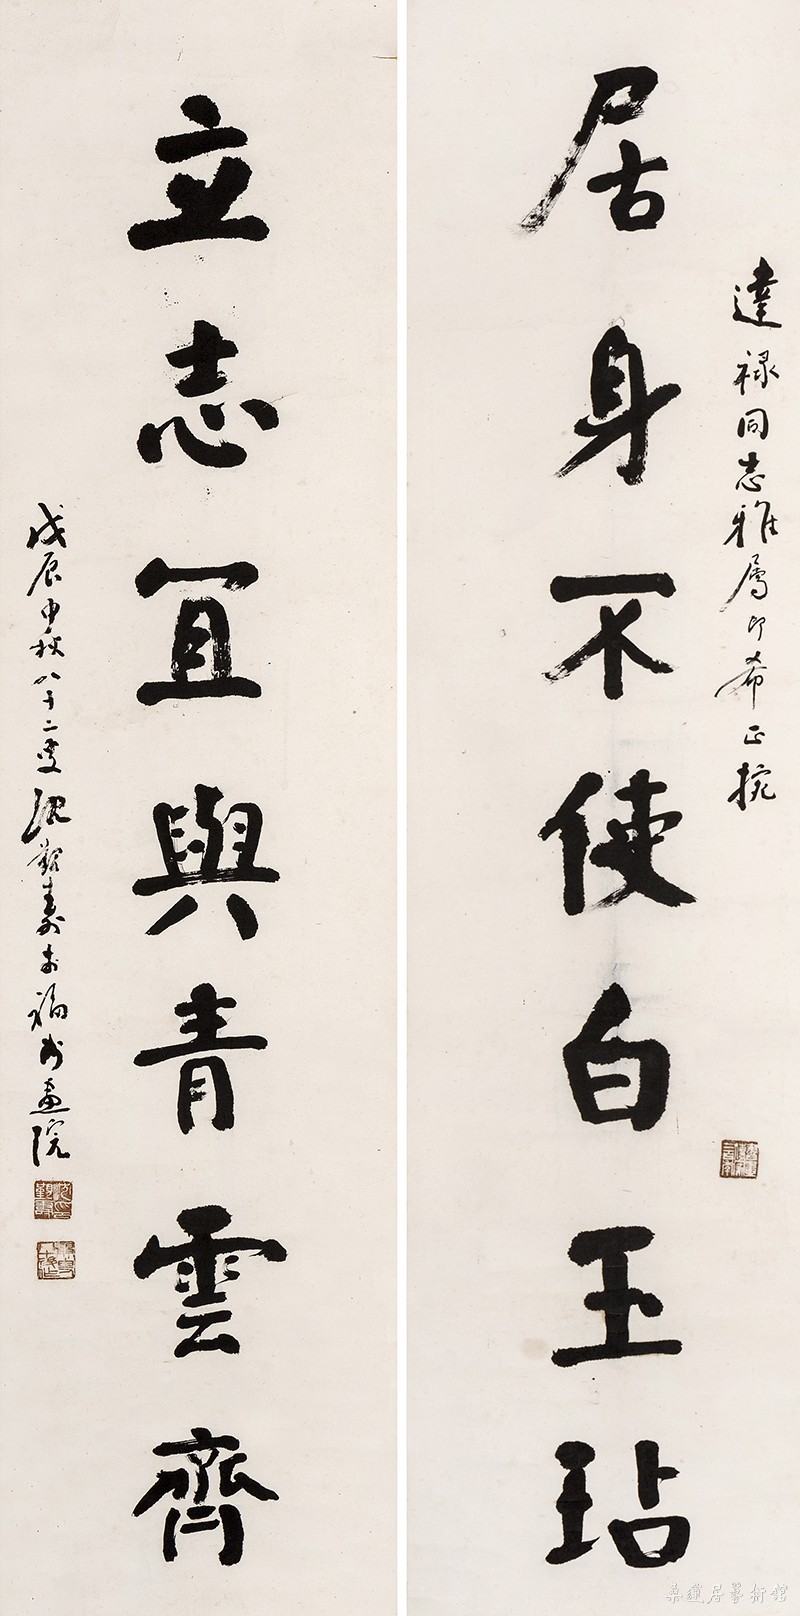 達祿同志雅屬即希正捥
居身不使白玉玷
立志宜與青雲齊
戊辰中秋八十二叟沈覲壽福州畫院
蓮居藝術館